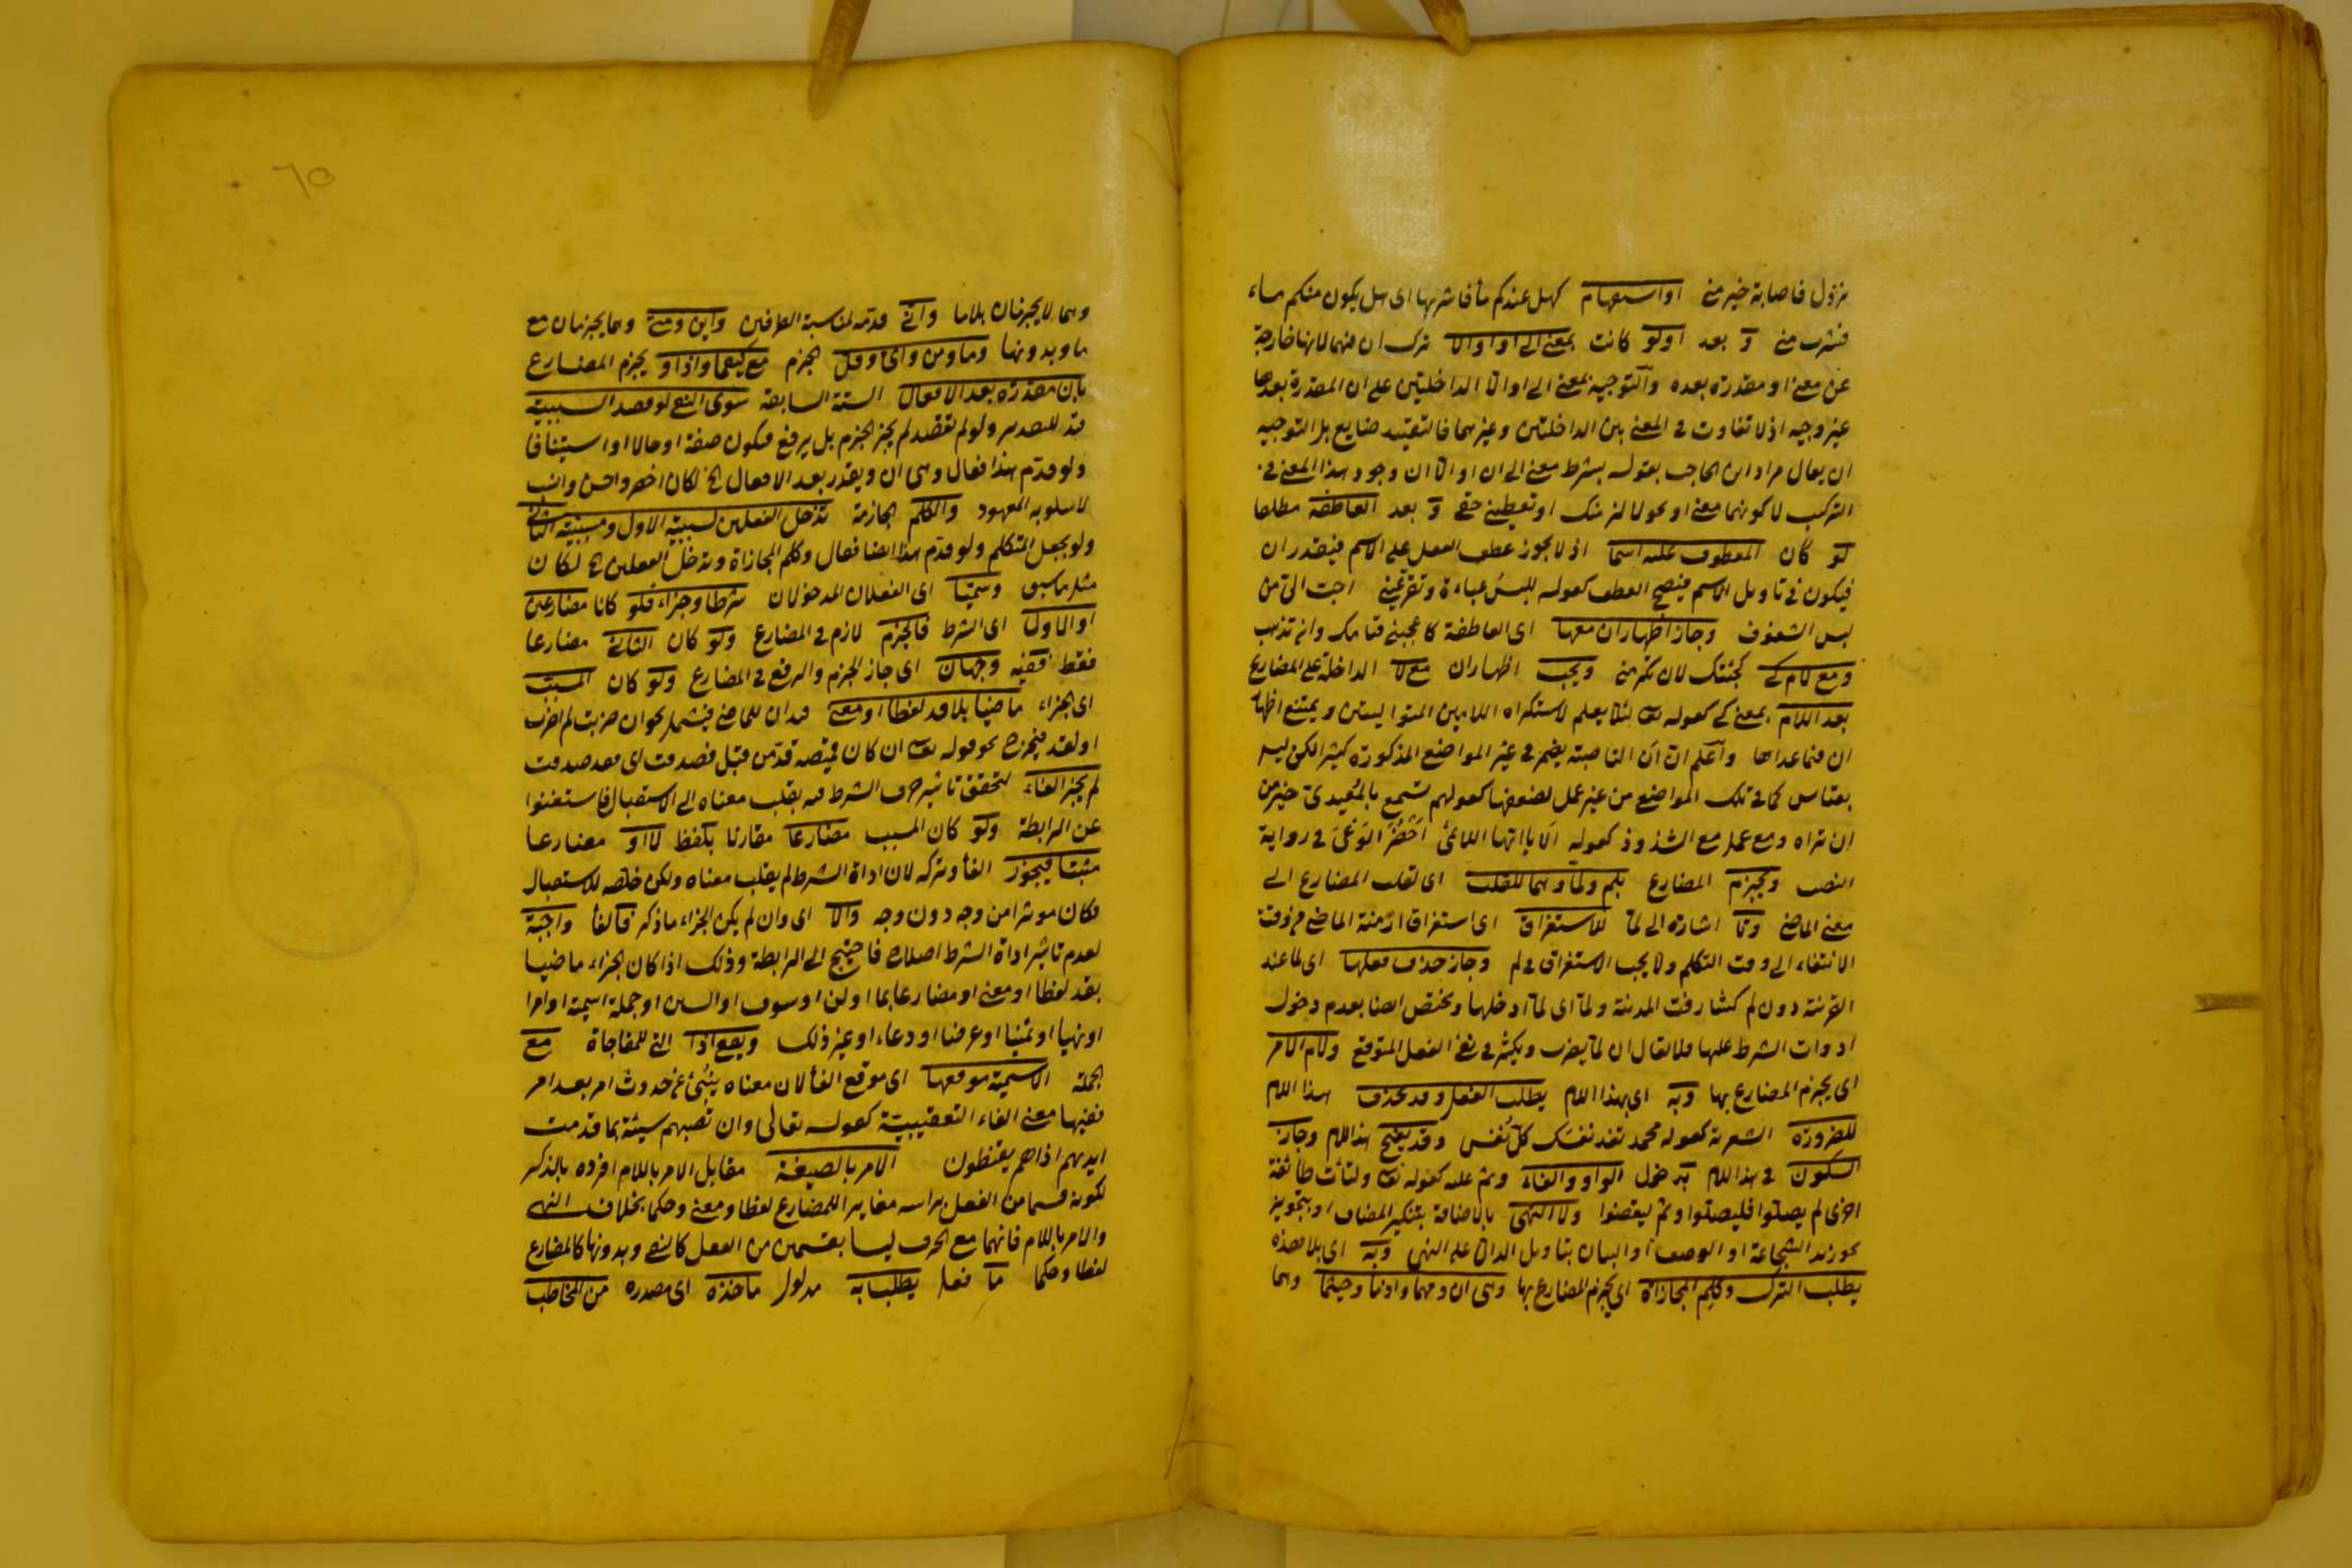 نزول فاصابة خير منى او استفهام كهل عندكم ماء فاشربها اى هل يكون منكم ماء
فشرب منى و بعد او لو كانت بمعنى الى او او الا ترك ان فيهما لانها خارجة
عن معنى او مقدرة بعده والتوجيه بمعنى الى او الا الداخلتين على ان المقدرة بعدها
غير وجيه اذ لا تفاوت فى المعنى بين الداخلتين وغيرهما فالتقييد ضايع بل التوجيه
ان يقال مراد ابن الحاجب بقوله بشرط معنى الى ان او الا ان وجود هذا المعنى فى
التركيب لا كونهما معنى او نحو لالزمنك او تعطينى حقى و بعد العاطفة مطلقا
لو كان المعطوف عليه اسما اذ لا يجوز عطف الفعل على الاسم فيقدر ان
فيكون فى تاويل الاسم فيصح العطف كقوله للبس عباءة وتقر عينى احب الى من
لبس الشفوف وجاز اظهار ان معها اى العاطفة كاعجبنى قيامك وان تذهب
ومع لام كى كجئتك لان تكرمنى ويجب اظهار ان مع لا الداخلة على المضارع
بعد اللام بمعنى كى كقوله تع لئلا يعلم لاستكراه اللامين المتواليتين ويمتنع اظهار
ان فيما عداها واعلم ان ان الناصبة يضمر فى غير المواضع المذكورة كثيرا لكن ليس
بقياس كما فى تلك المواضع من غير عمل لضعفها كقولهم تسمع بالمعيدى خير من
ان تراه ومع عمل مع الشذوذ كقوله الا يا ايها اللائمى احضر الوغى فى رواية
النصب ويجزم المضارع بلم ولما وهما للقلب اى لقلب المضارع الى
معنى الماضى ولما اشارة الى لما للاستغراق اى استغراق ازمنة الماضى من وقت
الانتفاء الى وقت التكلم ولا يجب الاستغراق فى لم وجاز حذف فعلها اى لما عند
القرينة دون لم كشارفت المدينة ولما اى لما ادخلها ويختص ايضا بعدم دخول
ادوات الشرط عليها فلا يقال ان لما يضرب ويكثر فى نفى الفعل المتوقع ولام الامر
اى يجزم المضارع بها وبه اى بهذا اللام يطلب الفعل وقد يحذف هذا اللام
للضرورة الشعرية كقوله محمد تفد نفسك كل نفس وقد يفتح هذا اللام وجاز
السكون فى هذا اللام بدخول الواو والفاء وثم عليه كقوله تع ولتات طائفة
اخرى لم يصلوا فليصلوا وثم ليقضوا ولا النهى بالاضافة بتنكير المضاف او بتجويز
نحو زيد الشجاعة او الوصف او البيان بتاويل الدال على النهى وبه اى بلا هذه
يطلب الترك وكلم المجازاة اى يجزم المضارع بها وهى ان ومهما واذما وحيثما وهما
٦٥
وهما لا يجزمان بلا ما وانى قدمه لمناسبة الطرفين واين ومتى وهما يجزمان مع
ما وبدونها وما ومن واى وقل الجزم مع كيفما واذا ويجزم المضارع
بان مقدرة بعد الافعال الستة السابقة سوى النفى لو قصد السببية
قيد للتقدير ولو لم تقصد لم يجز الجزم بل يرفع فيكون صفة او حالا او استينافا
ولو قدم هذا فقال وهى ان ويقدر بعد الافعال الخ لكان اخصر واحسن وانسب
لاسلوبه المعهود والكلم الجازمة تدخل الفعلين لسببية الاول ومسببية الثانى
ولو بجعل المتكلم ولو قدم هذا ايضا فقال وكلم المجازاة وتدخل الفعلين الخ لكان
مثل ما سبق وسميا اى الفعلان المدخولان شرطا وجزاء فلو كانا مضارعين
او الاول اى الشرط فالجزم لازم فى المضارع ولو كان الثانى مضارعا
فقط ففيه وجهان اى جاز الجزم والرفع فى المضارع ولو كان المسبب
اى الجزاء ماضيا بلا قد لفظا او معنى قيدان للماضى فيشمل نحو ان ضربت لم اضرب
او لقد فيخرج نحو قوله تع ان كان قميصه قد من قبل فصدقت اى فقد صدقت
لم يجز الفاء لتحقق تاثير حرف الشرط فيه بقلب معناه الى الاستقبال فاستغنوا
عن الرابطة ولو كان المسبب مضارعا مقارنا بلفظ لا او مضارعا
مثبتا فيجوز الفا وتركه لان اداة الشرط لم يقلب معناه ولكن خلصه للاستقبال
فكان موثرا من وجه دون وجه والا اى وان لم يكن الجزاء ما ذكر فالفا واجبة
لعدم تاثير اداة الشرط اصلا فاحتيج الى الرابطة وذلك اذا كان الجزاء ماضيا
بقد لفظا او معنى او مضارعا بما او لن او سوف او السين او جملة اسمية او امرا
او نهيا او تمنيا او عرضا او دعاء او غير ذلك ويقع اذا التى للمفاجاة مع
الجملة الاسمية موقعها اى موقع الفا لان معناه ينبئ عن حدوث امر بعد امر
ففيها معنى الفاء التعقيبية كقوله تعالى وان تصبهم سيئة بما قدمت
ايديهم اذا هم يقنطون الامر بالصيغة مقابل الامر باللام افرده بالذكر
لكونه قسما من الفعل براسه مغايرا للمضارع لفظا ومعنى وحكما بخلاف النهى
والامر باللام فانهما مع الحرف ليسا بقسمين من الفعل كالنفى وبدونها كالمضارع
لفظا وحكما ما فعل يطلب به مدلول ماخذه اى مصدره من المخاطب